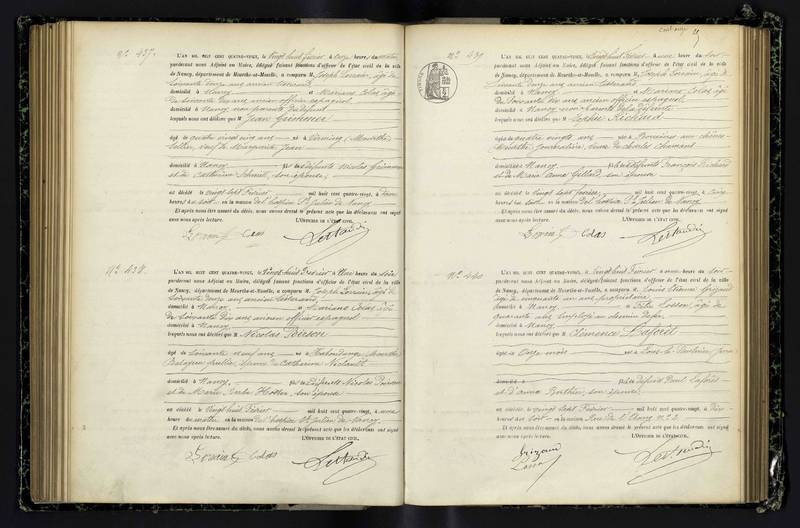 N° 437.
L'AN MIL HUIT CENT QUATRE-VINGT, le vingt huit février, à onze heures du matin
pardevant nous Adjoint au Maire, délégué faisant fonctions d'officier de l'état civil de la ville
de Nancy, département de Meurthe-et-Moselle, a comparu M. Joseph Lorrain, âgé de
soixante douze ans ancien
domicilié à Nancy et Mariano Colas âgé
de soixante dix ans ancien officier espagnol
domicilié à Nancy non parents du défunt
lesquels nous ont déclaré que M Jean
âgé de quatre vingt cinq ans né à (Meurthe)
veuf de Marguerite Jean
domicilié à Nancy fils des défunts Nicolas
et de Catherine Schmitt, son épouse,
est décédé le vingt sept Février mil huit cent quatre-vingt, à
heures du soir en la maison de l'hospice St Julien de Nancy
Et après nous être assuré du décès, nous avons dressé le présent acte que les déclarants ont signé
avec nous après lecture. L'OFFICIER DE L'ÉTAT CIVIL,
Lorrain Colas
N° 438.
L'AN MIL HUIT CENT QUATRE-VINGT, le Vingt huit Février à Une heure du soir
pardevant nous Adjoint au Maire, délégué faisant fonctions d'officier de l'état civil de la ville
de Nancy, département de Meurthe-et-Moselle, a comparu M. Joseph Lorrain, âgé de
soixante douze ans ancien
domicilié à Nancy et Mariano Colas âgé
de soixante dix ans ancien officier espagnol
domicilié à Nancy
lesquels nous ont déclaré que M Nicolas Poirson
âgé de soixante neuf ans né à (Meurthe)
époux de Catherine
domicilié à Nancy, fils des défunts Nicolas Poirson
et de Marie Barbe son épouse
est décédé le vingt huit Février mil huit cent quatre-vingt, à onze
heures du matin en la maison de l'hospice St Julien de Nancy
Et après nous être assuré du décès, nous avons dressé le présent acte que les déclarants ont signé
avec nous après lecture. L'OFFICIER DE L'ÉTAT CIVIL,
Lorrain Colas
N° 439
L'AN MIL HUIT CENT QUATRE-VINGT, le Vingt huit Février, à une heure du soir
pardevant nous Adjoint au Maire, délégué faisant fonctions d'officier de l'état civil de la ville
de Nancy, département de Meurthe-et-Moselle, a comparu M. Joseph Lorrain, âgé de
soixante douze ans ancien
domicilié à Nancy et Mariano Colas âgé
de soixante dix ans ancien officier espagnol
domicilié à Nancy non parents de la défunte
lesquels nous ont déclaré que M Sophie Richard
âgée de quatre vingts ans née à Rosières aux
Meurthe, journalière, veuve de Charles Chamant
domiciliée à Nancy fille des défunts François Richard
et de Marie Anne son épouse
est décédée le vingt sept février, mil huit cent quatre-vingt, à cinq
heures du soir en la maison de l'hospice St Julien de Nancy
Et après nous être assuré du décès, nous avons dressé le présent acte que les déclarants ont signé
avec nous après lecture. L'OFFICIER DE L'ÉTAT CIVIL,
Lorrain Colas
N° 440
L'AN MIL HUIT CENT QUATRE-VINGT, le Vingt huit Février à une heure du soir
pardevant nous Adjoint au Maire, délégué faisant fonctions d'officier de l'état civil de la ville
de Nancy, département de Meurthe-et-Moselle, a comparu M. Louis Étienne
âgé de cinquante un ans propriétaire
domicilié à Nancy et âgé de
quarante ans Employé au chemin de fer
domicilié à Nancy
lesquels nous ont déclaré que M Clémence Laforêt
âgée de Onze mois née à
domiciliée à fille de défunt Paul Laforêt
et d'Anna Berthier, son épouse
est décédée le vingt sept Février mil huit cent quatre-vingt, à dix
heures du soir en la maison Rue de l'Étang n° 23
Et après nous être assuré du décès, nous avons dressé le présent acte que les déclarants ont signé
avec nous après lecture. L'OFFICIER DE L'ÉTAT CIVIL,